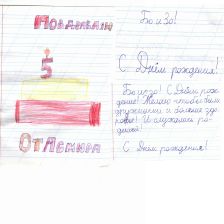 Поздравляю
5
От Лемира
Боизо!
С Днём рождения!
Боизо! С Днём рож-
дение! Желаю чтобы был
дружными и больше здо-
ровье! И слушались ро-
С Днём рождения!